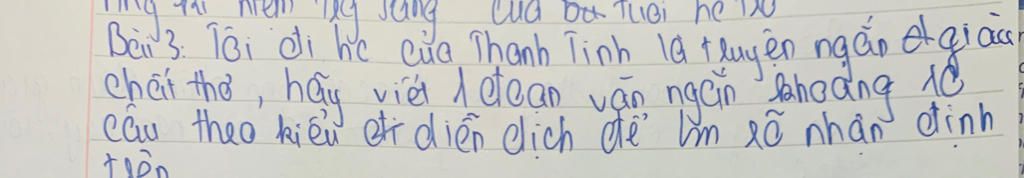 của
Bài 3: Tôi đi học của Thanh Tịnh là truyện ngắn giàu
chất thơ, hãy viết 1 đoạn văn ngắn khoảng 10
câu theo kiểu diễn dịch để làm rõ nhận định
trên